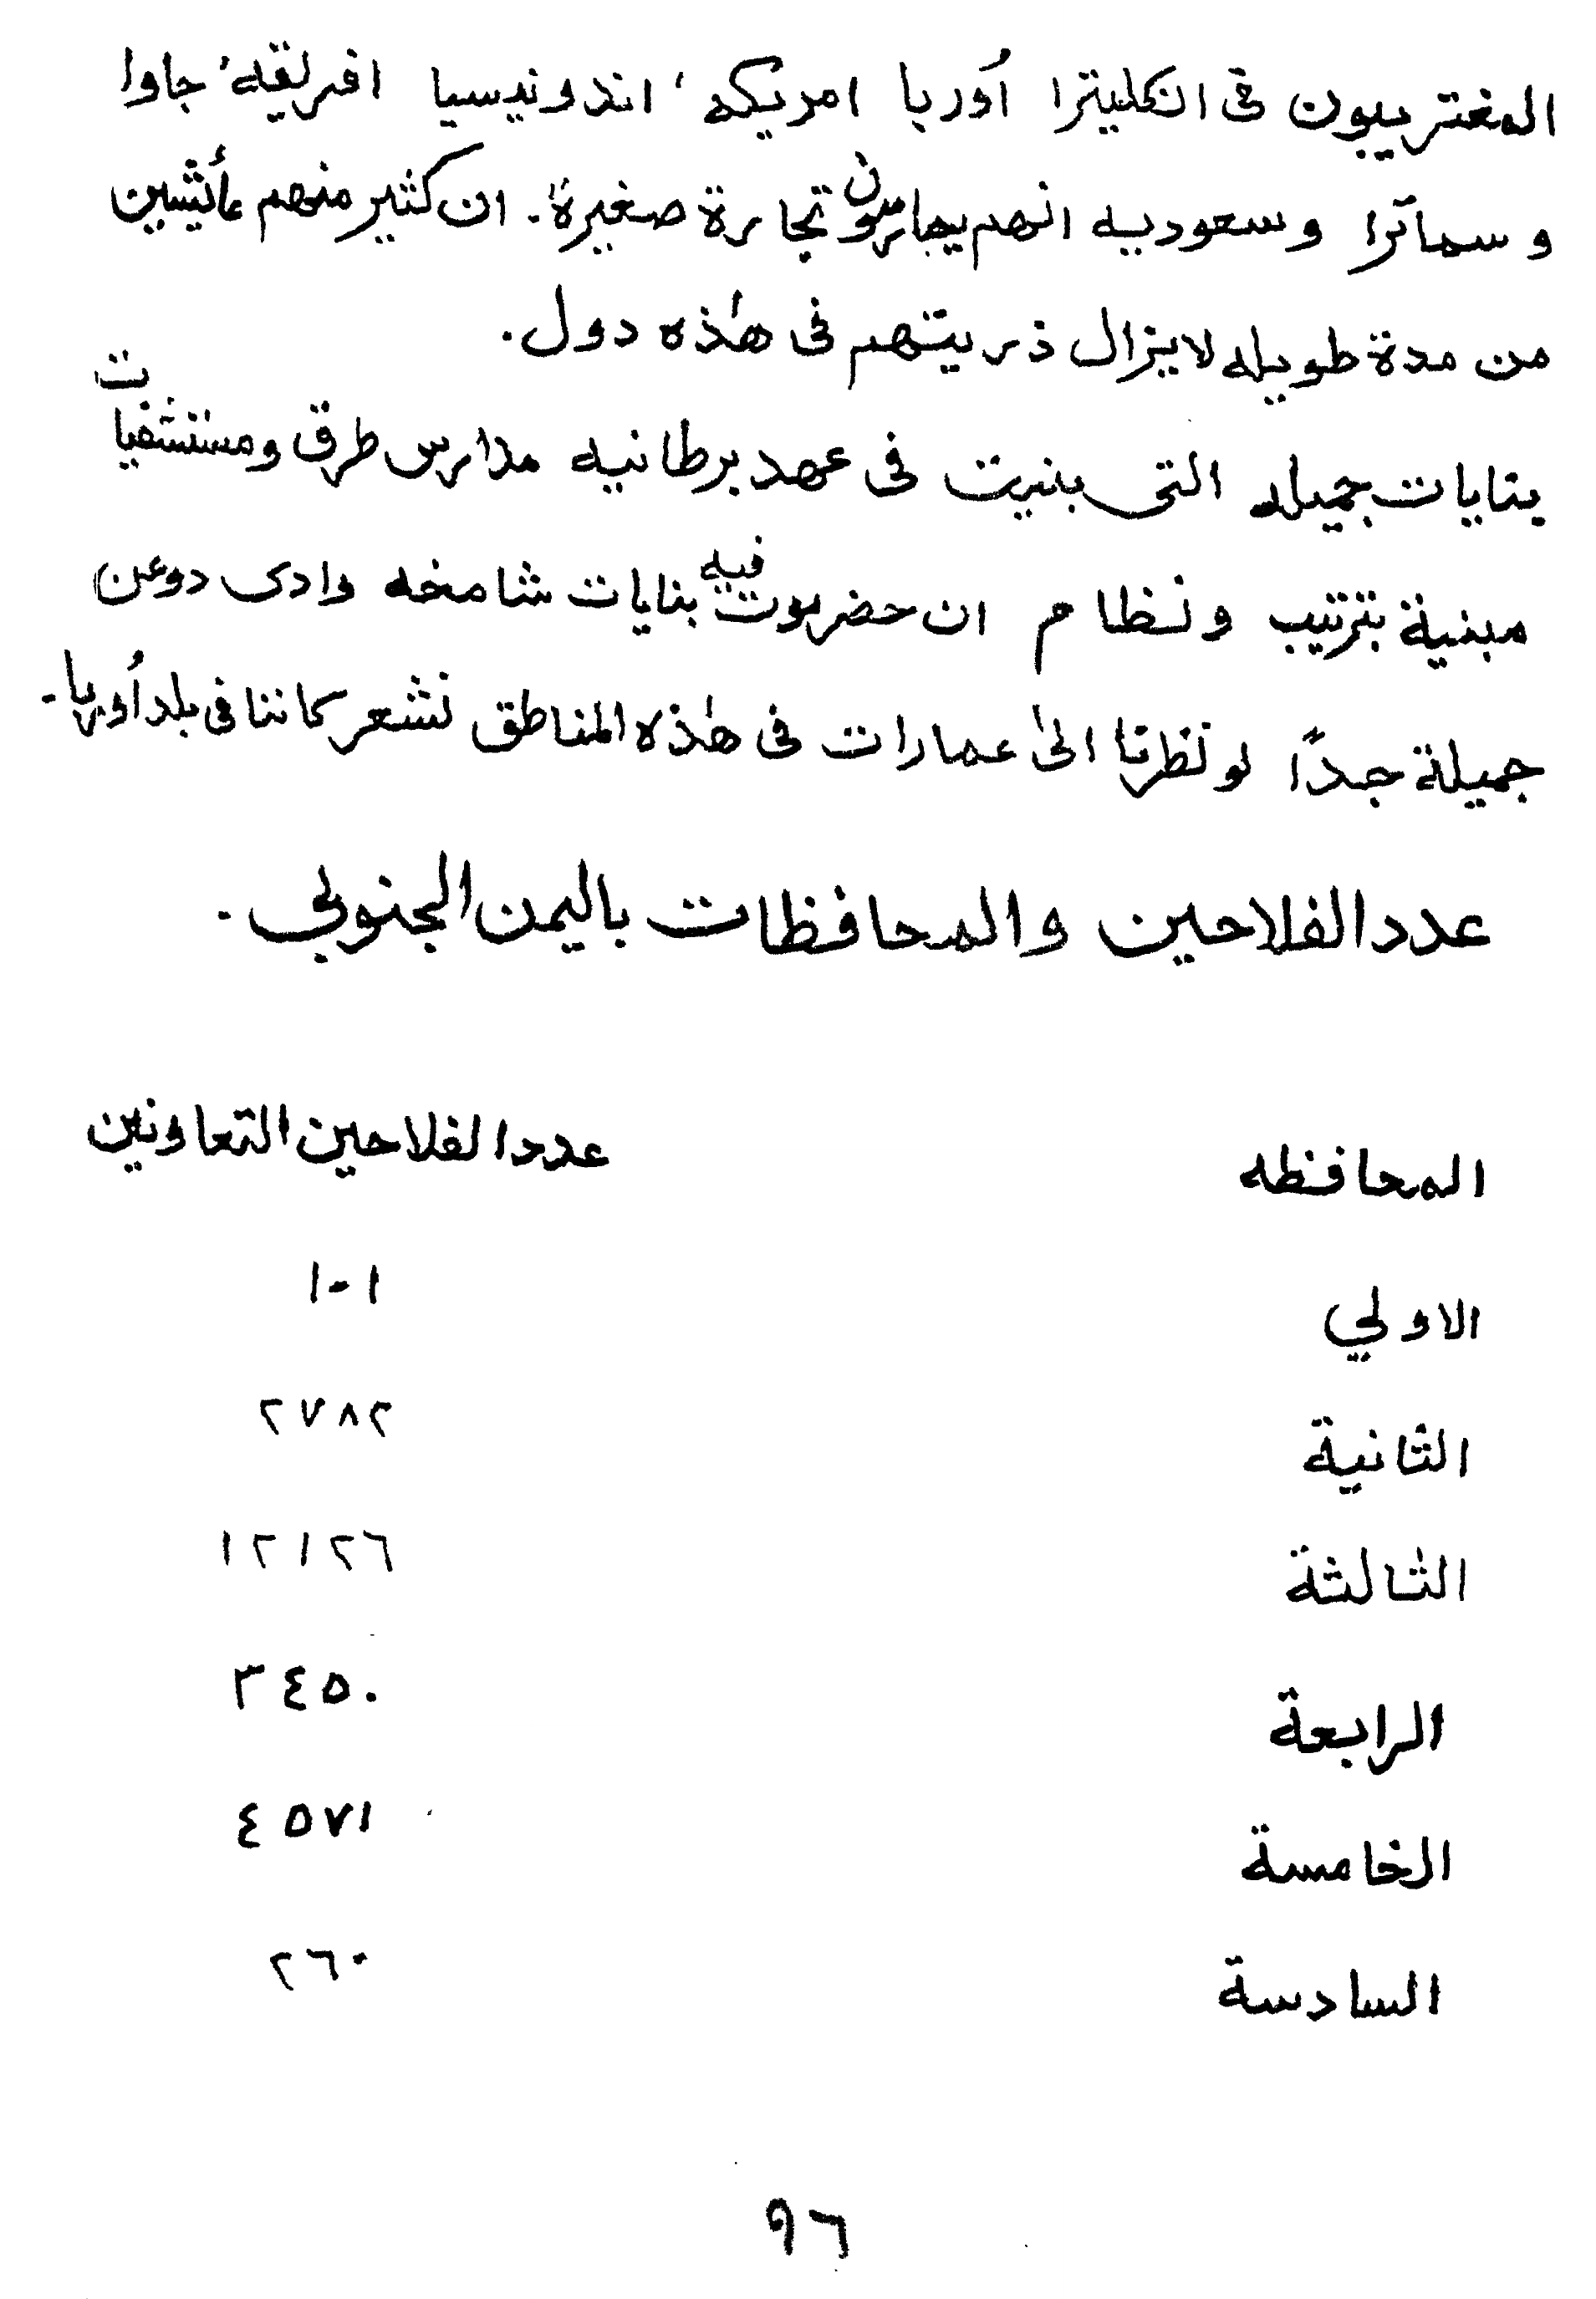 المغتربيون فى انكليترا أوربا امريكه ، اندونيسيا افريقه ، جاوا
و سماترا وسعوديه انهم يمارسون تجارة صغيرة . ان كثير منهم عأئشين
من مدة طويله لا يزال ذريتهم فى هذه دول .
بنايات جميله التى بنيت فى عهد برطانيه مدارس طرق ومستشفيات
مبنية بترتيب ونظام ان حضرموت فيه بنايات شامخه وادى دوعن
جميلة جدًا لو نظرنا الى عمارات فى هذه المناطق نشعر كاننا فى بلد أوربا .
عدد الفلاحين والمحافظات باليمن الجنوبي .
المحافظه عدد الفلاحين التعاونين
الاولي ١٠١
الثانية ٢٧٨٢
الثالثة ١٢١٢٦
الرابعة ٣٤٥٠
الخامسة ٤٥٧١
السادسة ٢٦٠
٩٦